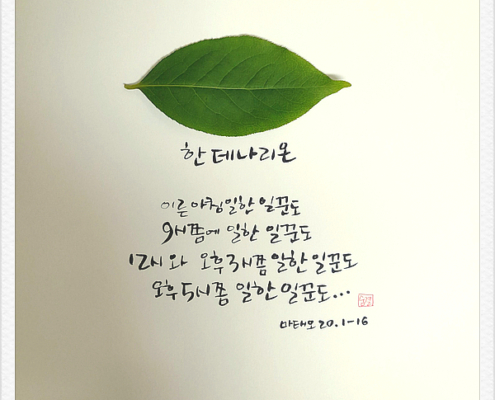 한 데나리온
이른 아침 일한 일꾼도
9시쯤에 일한 일꾼도
12시와 오후 3시쯤 일한 일꾼도
오후 5시쯤 일한 일꾼도...
마태오 20.1-16